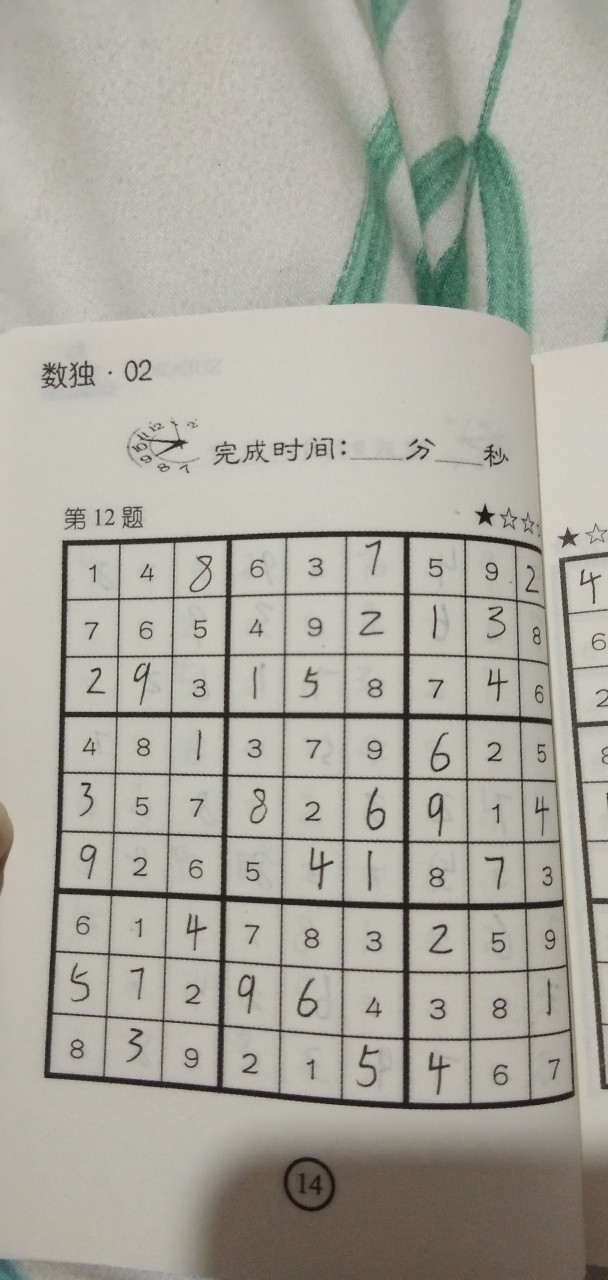 数独·02
完成时间:___分___秒
第12题 ★☆☆
1 4 8 6 3 7 5 9 2
7 6 5 4 9 2 1 3 8
2 9 3 1 5 8 7 4 6
4 8 1 3 7 9 6 2 5
3 5 7 8 2 6 9 1 4
9 2 6 5 4 1 8 7 3
6 1 4 7 8 3 2 5 9
5 7 2 9 6 4 3 8 1
8 3 9 2 1 5 4 6 7
14
★☆
4
6
2